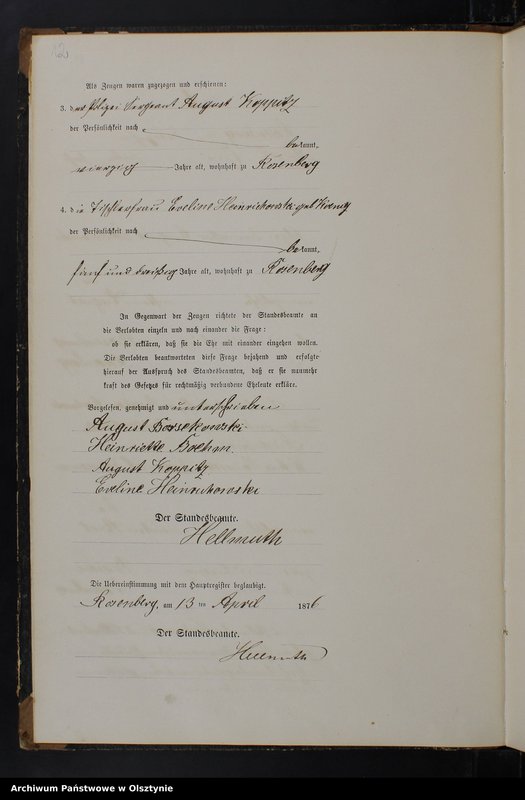 12.
Als Zeugen waren zugezogen und erschienen:
3. der Polizei Sergeant August Koppitz
der Persönlichkeit nach
bekannt,
vierzig Jahre alt, wohnhaft zu Rosenberg
4. die Tischlerfrau Eveline Heinrichowska geb.
der Persönlichkeit nach
bekannt,
fünf und dreißig Jahre alt, wohnhaft zu Rosenberg
In Gegenwart der Zeugen richtete der Standesbeamte an
die Verlobten einzeln und nach einander die Frage:
ob sie erklären, daß sie die Ehe mit einander eingehen wollen.
Die Verlobten beantworteten diese Frage bejahend und erfolgte
hierauf der Ausspruch des Standesbeamten, daß er sie nunmehr
kraft des Gesetzes für rechtmäßig verbundene Eheleute erkläre.
Vorgelesen, genehmigt und unterschrieben
August Borsekowski
Heinriette Boehm.
August Koppitz
Eveline Heinrichowska
Der Standesbeamte.
Hellmuth
Die Uebereinstimmung mit dem Hauptregister beglaubigt.
Rosenberg, am 13 ten April 1876
Der Standesbeamte.
Hellmuth
Archiwum Państwowe w Olsztynie